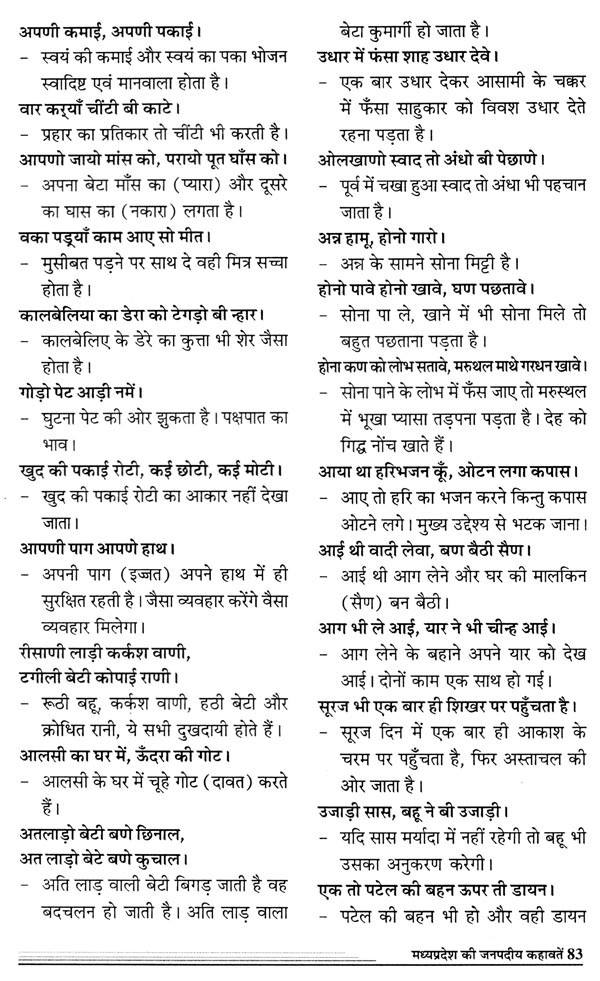 अपणी कमाई, अपणी पकाई।
– स्वयं की कमाई और स्वयं का पका भोजन
स्वादिष्ट एवं मानवाला होता है।
वार कर्‌याँ चींटी बी काटे।
– प्रहार का प्रतिकार तो चींटी भी करती है।
आपणो जायो मांस को, परायो पूत घाँस को।
– अपना बेटा माँस का (प्यारा) और दूसरे
का घास का (नकारा) लगता है।
वका पड्याँ काम आए सो मीत।
– मुसीबत पड़ने पर साथ दे वही मित्र सच्चा
होता है।
कालबेलिया का डेरा को टेगड़ो बी न्हार।
– कालबेलिए के डेरे का कुत्ता भी शेर जैसा
होता है।
गोड़ो पेट आड़ी नमें।
– घुटना पेट की ओर झुकता है। पक्षपात का
भाव।
खुद की पकाई रोटी, कई छोटी, कई मोटी।
– खुद की पकाई रोटी का आकार नहीं देखा
जाता।
आपणी पाग आपणे हाथ।
– अपनी पाग (इज्जत) अपने हाथ में ही
सुरक्षित रहती है। जैसा व्यवहार करेंगे वैसा
व्यवहार मिलेगा।
रीसाणी लाड़ी कर्कश वाणी,
टगीली बेटी कोपाई राणी।
– रूठी बहू, कर्कश वाणी, हठी बेटी और
क्रोधित रानी, ये सभी दुखदायी होते हैं।
आलसी का घर में, ऊँदरा की गोट।
– आलसी के घर में चूहे गोट (दावत) करते
हैं।
अतलाड़ो बेटी बणे छिनाल,
अत लाड़ो बेटे बणे कुचाल।
– अति लाड़ वाली बेटी बिगड़ जाती है वह
बदचलन हो जाती है। अति लाड़ वाला
बेटा कुमार्गी हो जाता है।
उधार में फंसा शाह उधार देवे।
– एक बार उधार देकर आसामी के चक्कर
में फँसा साहुकार को विवश उधार देते
रहना पड़ता है।
ओलखाणो स्वाद तो अंधो बी पेछाणे।
– पूर्व में चखा हुआ स्वाद तो अंधा भी पहचान
जाता है।
अन्न हामू, होनो गारो।
– अन्न के सामने सोना मिट्टी है।
होनो पावे होनो खावे, घण पछतावे।
– सोना पा ले, खाने में भी सोना मिले तो
बहुत पछताना पड़ता है।
होना कण को लोभ सतावे, मरुथल माथे गरधन खावे।
– सोना पाने के लोभ में फँस जाए तो मरुस्थल
में भूखा प्यासा तड़पना पड़ता है। देह को
गिद्ध नोंच खाते हैं।
आया था हरिभजन कूँ, ओटन लगा कपास।
– आए तो हरि का भजन करने किन्तु कपास
ओटने लगे। मुख्य उद्देश्य से भटक जाना।
आई थी वादी लेवा, बण बैठी सैण।
– आई थी आग लेने और घर की मालकिन
(सैण) बन बैठी।
आग भी ले आई, यार ने भी चीन्ह आई।
– आग लेने के बहाने अपने यार को देख
आई। दोनों काम एक साथ हो गई।
सूरज भी एक बार ही शिखर पर पहुँचता है।
– सूरज दिन में एक बार ही आकाश के
चरम पर पहुँचता है, फिर अस्ताचल की
ओर जाता है।
उजाड़ी सास, बहू ने बी उजाड़ी।
– यदि सास मर्यादा में नहीं रहेगी तो बहू भी
उसका अनुकरण करेगी।
एक तो पटेल की बहन ऊपर ती डायन।
– पटेल की बहन भी हो और वही डायन
मध्यप्रदेश की जनपदीय कहावतें 83